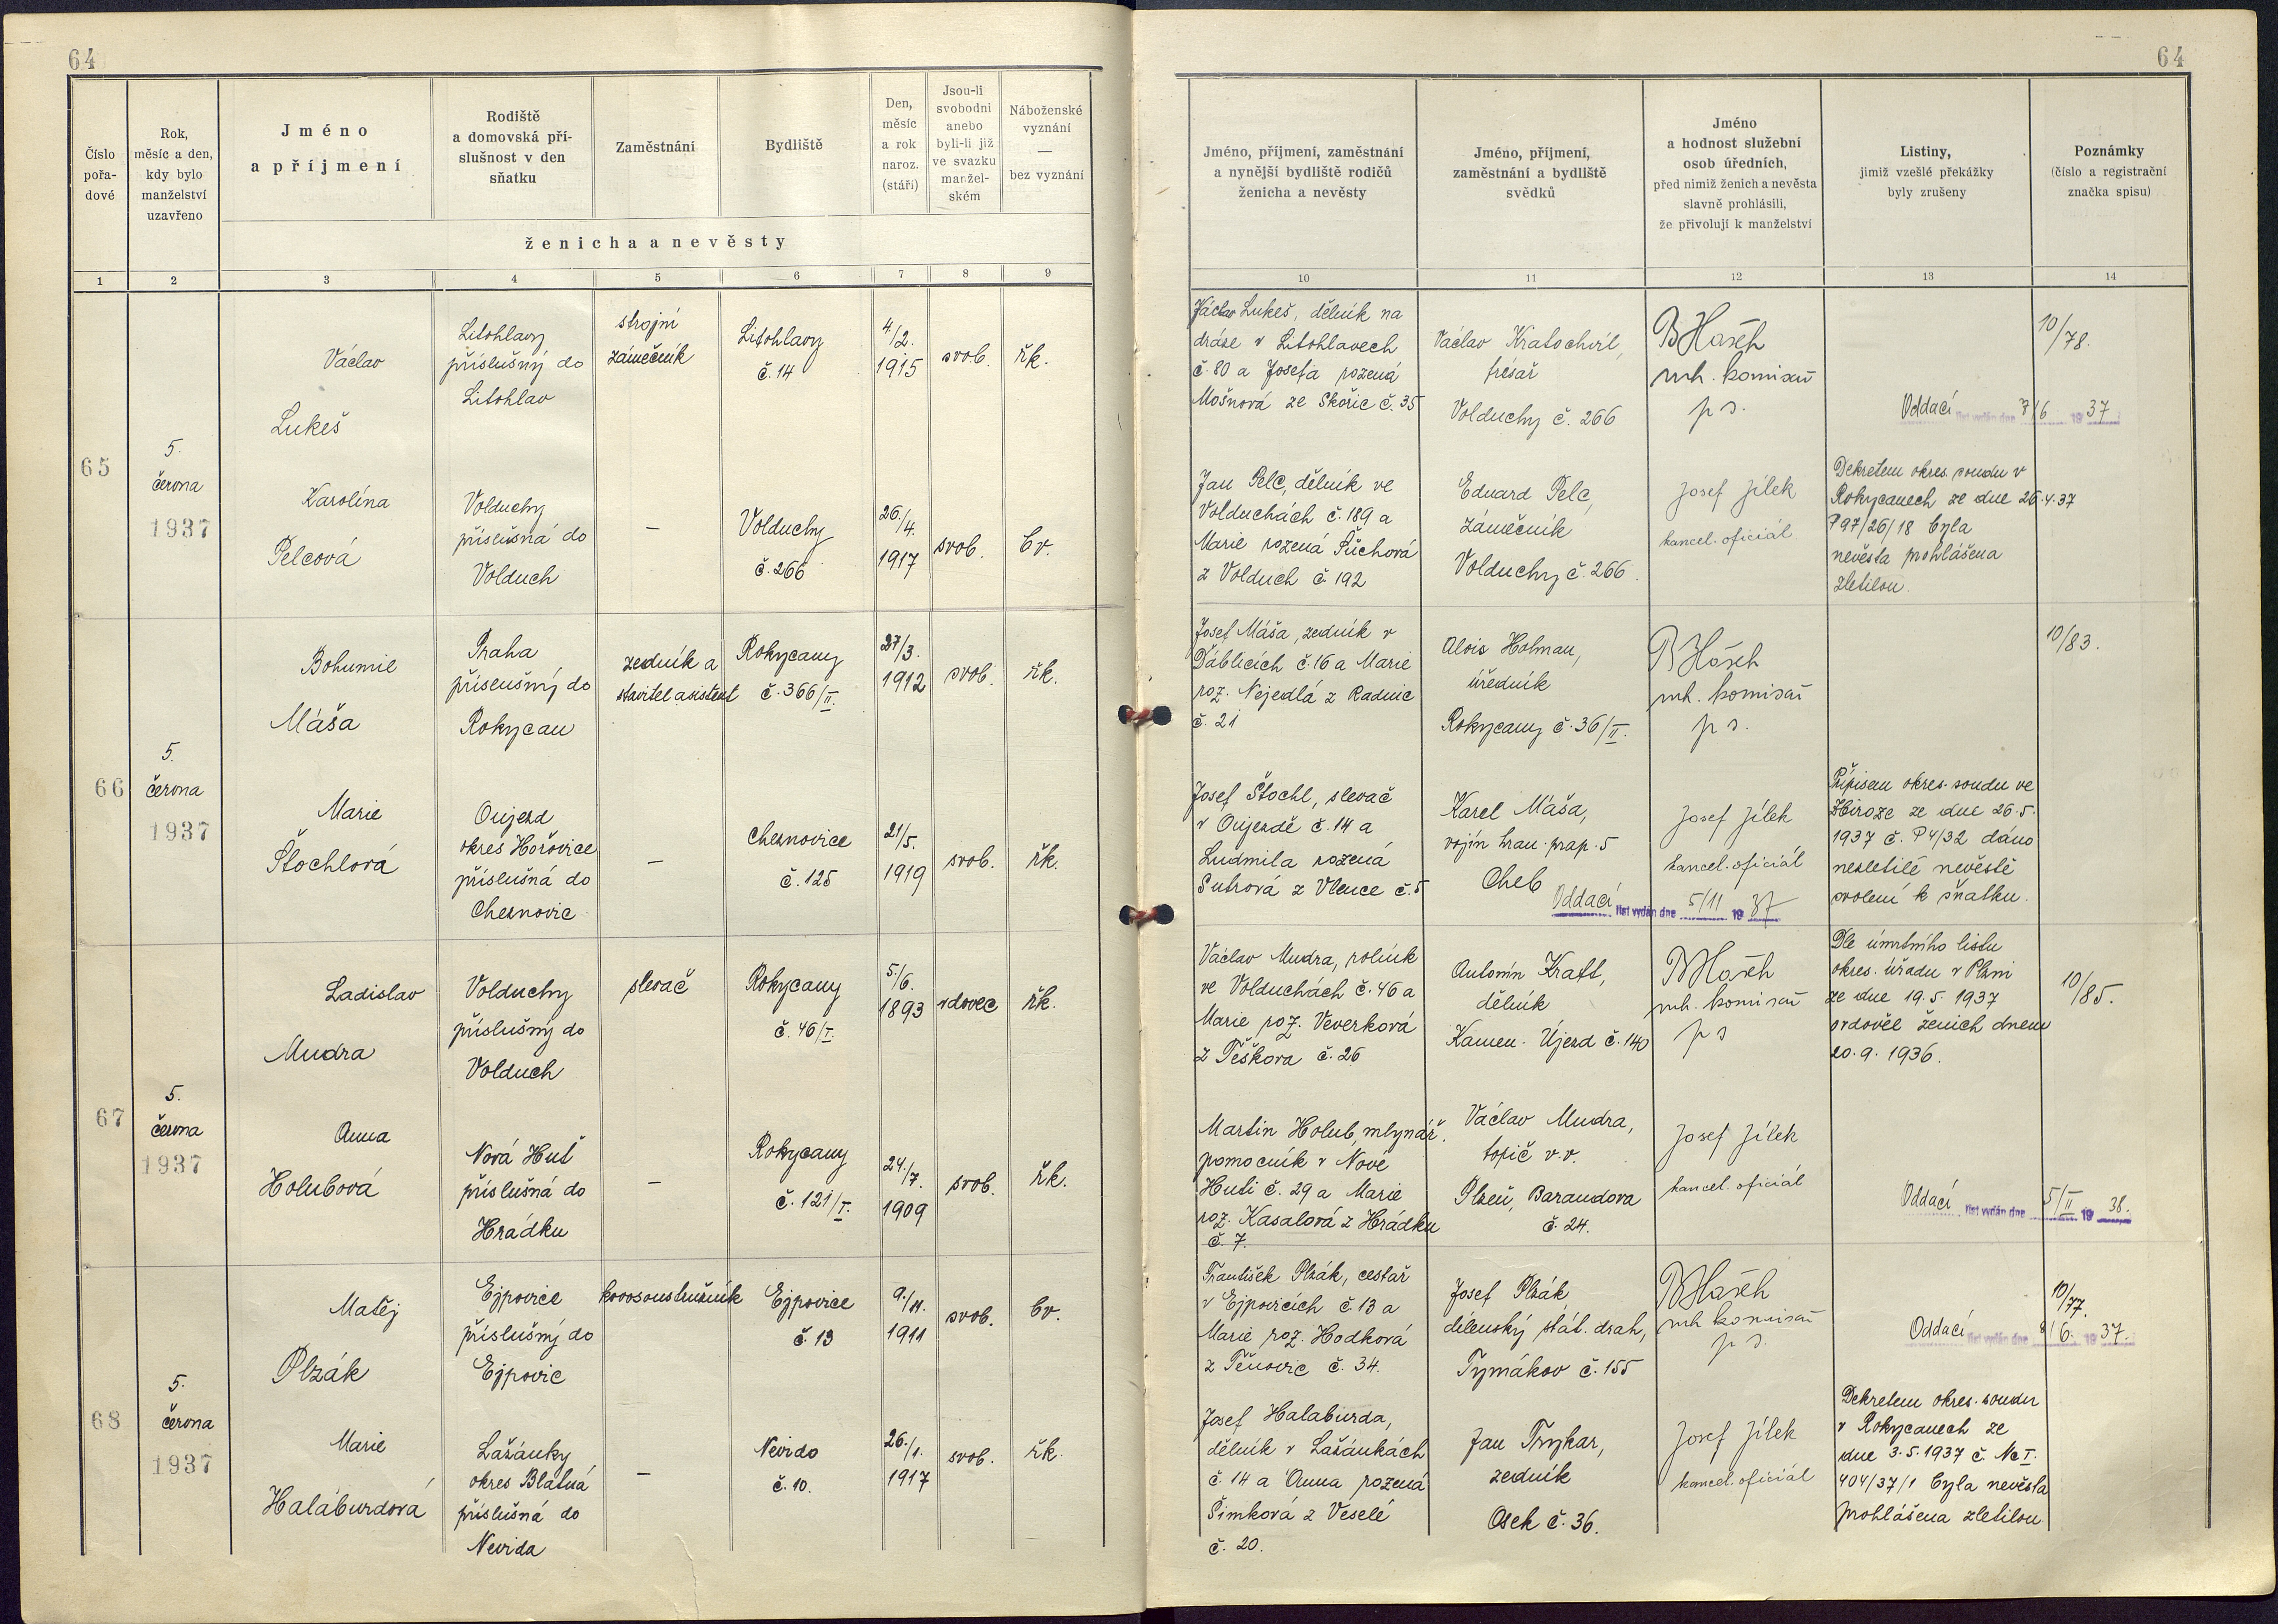 64
64
Číslo
pořa-
dové
Rok,
měsíc a den,
kdy bylo
manželství
uzavřeno
Jméno
a příjmení
Rodiště
a domovská pří-
slušnost v den
sňatku
Zaměstnání
Bydliště
Den,
měsíc
a rok
naroz.
(stáří)
Jsou-li
svobodni
anebo
byli-li již
ve svazku
manžel-
ském
Náboženské
vyznání
—
bez vyznání
ženicha a nevěsty
Jméno, příjmení, zaměstnání
a nynější bydliště rodičů
ženicha a nevěsty
Jméno, příjmení,
zaměstnání a bydliště
svědků
Jméno
a hodnost služební
osob úředních,
před nimiž ženich a nevěsta
slavně prohlásili,
že přivolují k manželství
Listiny,
jimiž vzešlé překážky
byly zrušeny
Poznámky
(číslo a registrační
značka spisu)
1 2 3 4 5 6 7 8 9 10 11 12 13 14
65
5.
června
1937
Václav
Lukeš
Litohlavy
příslušný do
Litohlav
strojní
zámečník
Litohlavy
č. 14
4./2.
1915
svob.
řk.
Václav Lukeš, dělník na
dráze v Litohlavech
č. 80 a Josefa rozená
Mošnová ze Skořic č. 35
Václav Kratochvíl,
frésař
Volduchy č. 266
B Hašek
mh. komisař
p s.
Oddací list vydán dne 7/6 1937
10/78.
Karolína
Pelcová
Volduchy
příslušná do
Volduch
—
Volduchy
č. 266
26./4.
1917
svob.
bv.
Jan Pelc, dělník ve
Volduchách č. 189 a
Marie rozená Šůchová
z Volduch č. 192
Eduard Pelc,
zámečník
Volduchy č. 266.
Josef Jílek
kancel. oficiál
Dekretem okres. soudu v
Rokycanech ze dne 26.4.37
P 97/26/18 byla
nevěsta prohlášena
zletilou.
66
5.
června
1937
Bohumil
Máša
Praha
příslušný do
Rokycan
zedník a
stavitel asistent
Rokycany
č. 366/II.
27/3.
1912
svob.
řk.
Josef Máša, zedník v
Ďáblicích č. 16 a Marie
roz. Nejedlá z Radnic
č. 21
Alois Holman,
úředník
Rokycany č. 36/II.
B Hašek
mh. komisař
p s.
10/83.
Marie
Štochlová
Oujezd
okres Hořovice
příslušná do
Cheznovic
—
Cheznovice
č. 125
21/5.
1919
svob.
řk.
Josef Štochl, slevač
v Oujezdě č. 14 a
Ludmila rozená
Sutrová z Vlence č. 5
Karel Máša,
vojín hran. prap. 5
Cheb
Josef Jílek
kancel. oficiál
Oddací list vydán dne 5/11 1937
Přípisem okres. soudu ve
Zbiroze ze dne 26.5.
1937 č. P 4/32 dáno
nezletilé nevěstě
svolení k sňatku.
67
5.
června
1937
Ladislav
Mudra
Volduchy
příslušný do
Volduch
slevač
Rokycany
č. 46/I.
5./6.
1893
vdovec
řk.
Václav Mudra, rolník
ve Volduchách č. 46 a
Marie roz. Veverková
z Těškova č. 26
Antonín Kraft,
dělník
Kamen. Újezd č. 140
B Hašek
mh. komisař
p s
Dle úmrtního listu
okres. úřadu v Plzni
ze dne 19.5. 1937
ovdověl ženich dnem
20.9. 1936.
10/85.
Anna
Holubová
Nová Huť
příslušná do
Hrádku
—
Rokycany
č. 121/I.
24./7.
1909
svob.
řk.
Martin Holub, mlynář.
pomocník v Nové
Huti č. 29 a Marie
roz. Kasalová z Hrádku
č. 7.
Václav Mudra,
topič v.v.
Plzeň, Barandova
č. 24.
Josef Jílek
kancel. oficiál
Oddací list vydán dne 5/II 1938.
68
5.
června
1937
Matěj
Plzák
Ejpovice
příslušný do
Ejpovic
kovosoustružník
Ejpovice
č. 13
9./11.
1911
svob.
bv.
František Plzák, cestář
v Ejpovicích č. 13 a
Marie roz. Hodková
z Těnovic č. 34.
Josef Plzák
dílenský stát. drah,
Tymákov č. 155
B Hašek
mh komisař
p s.
Oddací list vydán dne 8/6. 1937.
10/77.
Marie
Halaburdová
Lažánky
okres Blatná
příslušná do
Nevida
—
Nevido
č. 10.
26./1.
1917
svob.
řk.
Josef Halaburda,
dělník v Lažánkách
č. 14 a Anna rozená
Šimková z Veselé
č. 20.
Jan Trykar,
zedník
Osek č. 36.
Josef Jílek
kancel. oficiál
Dekretem okres. soudu
v Rokycanech ze
dne 3.5.1937 č. Nc I.
404/37/1 byla nevěsta
prohlášena zletilou